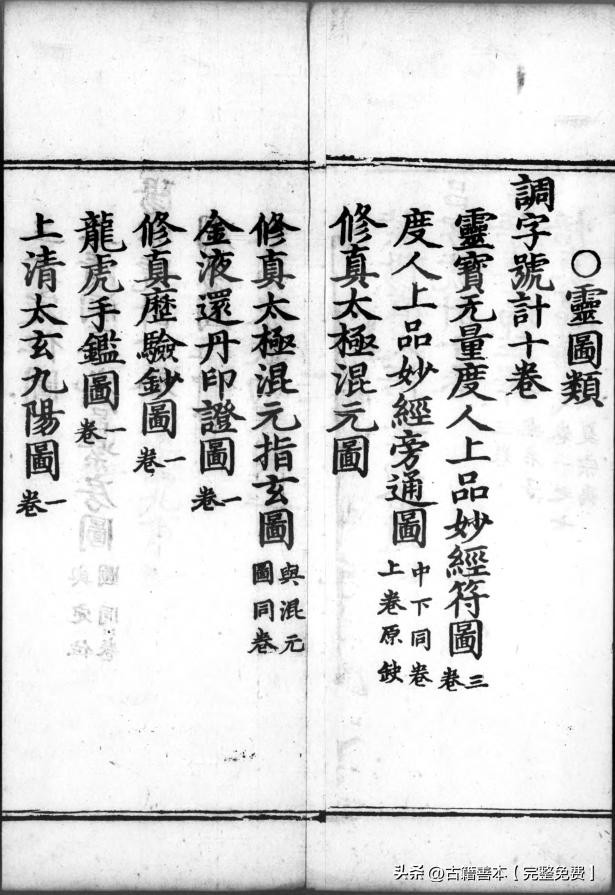 ○靈圖類
調字號計十卷
靈寶无量度人上品妙經符圖三卷
度人上品妙經旁通圖中下同卷上卷原缺
修真太極混元圖
修真太極混元指玄圖與混元圖同卷
金液還丹印證圖一卷
修真歷驗鈔圖一卷
龍虎手鑑圖一卷
上清太玄九陽圖一卷
头条@古籍善本【完整免费】